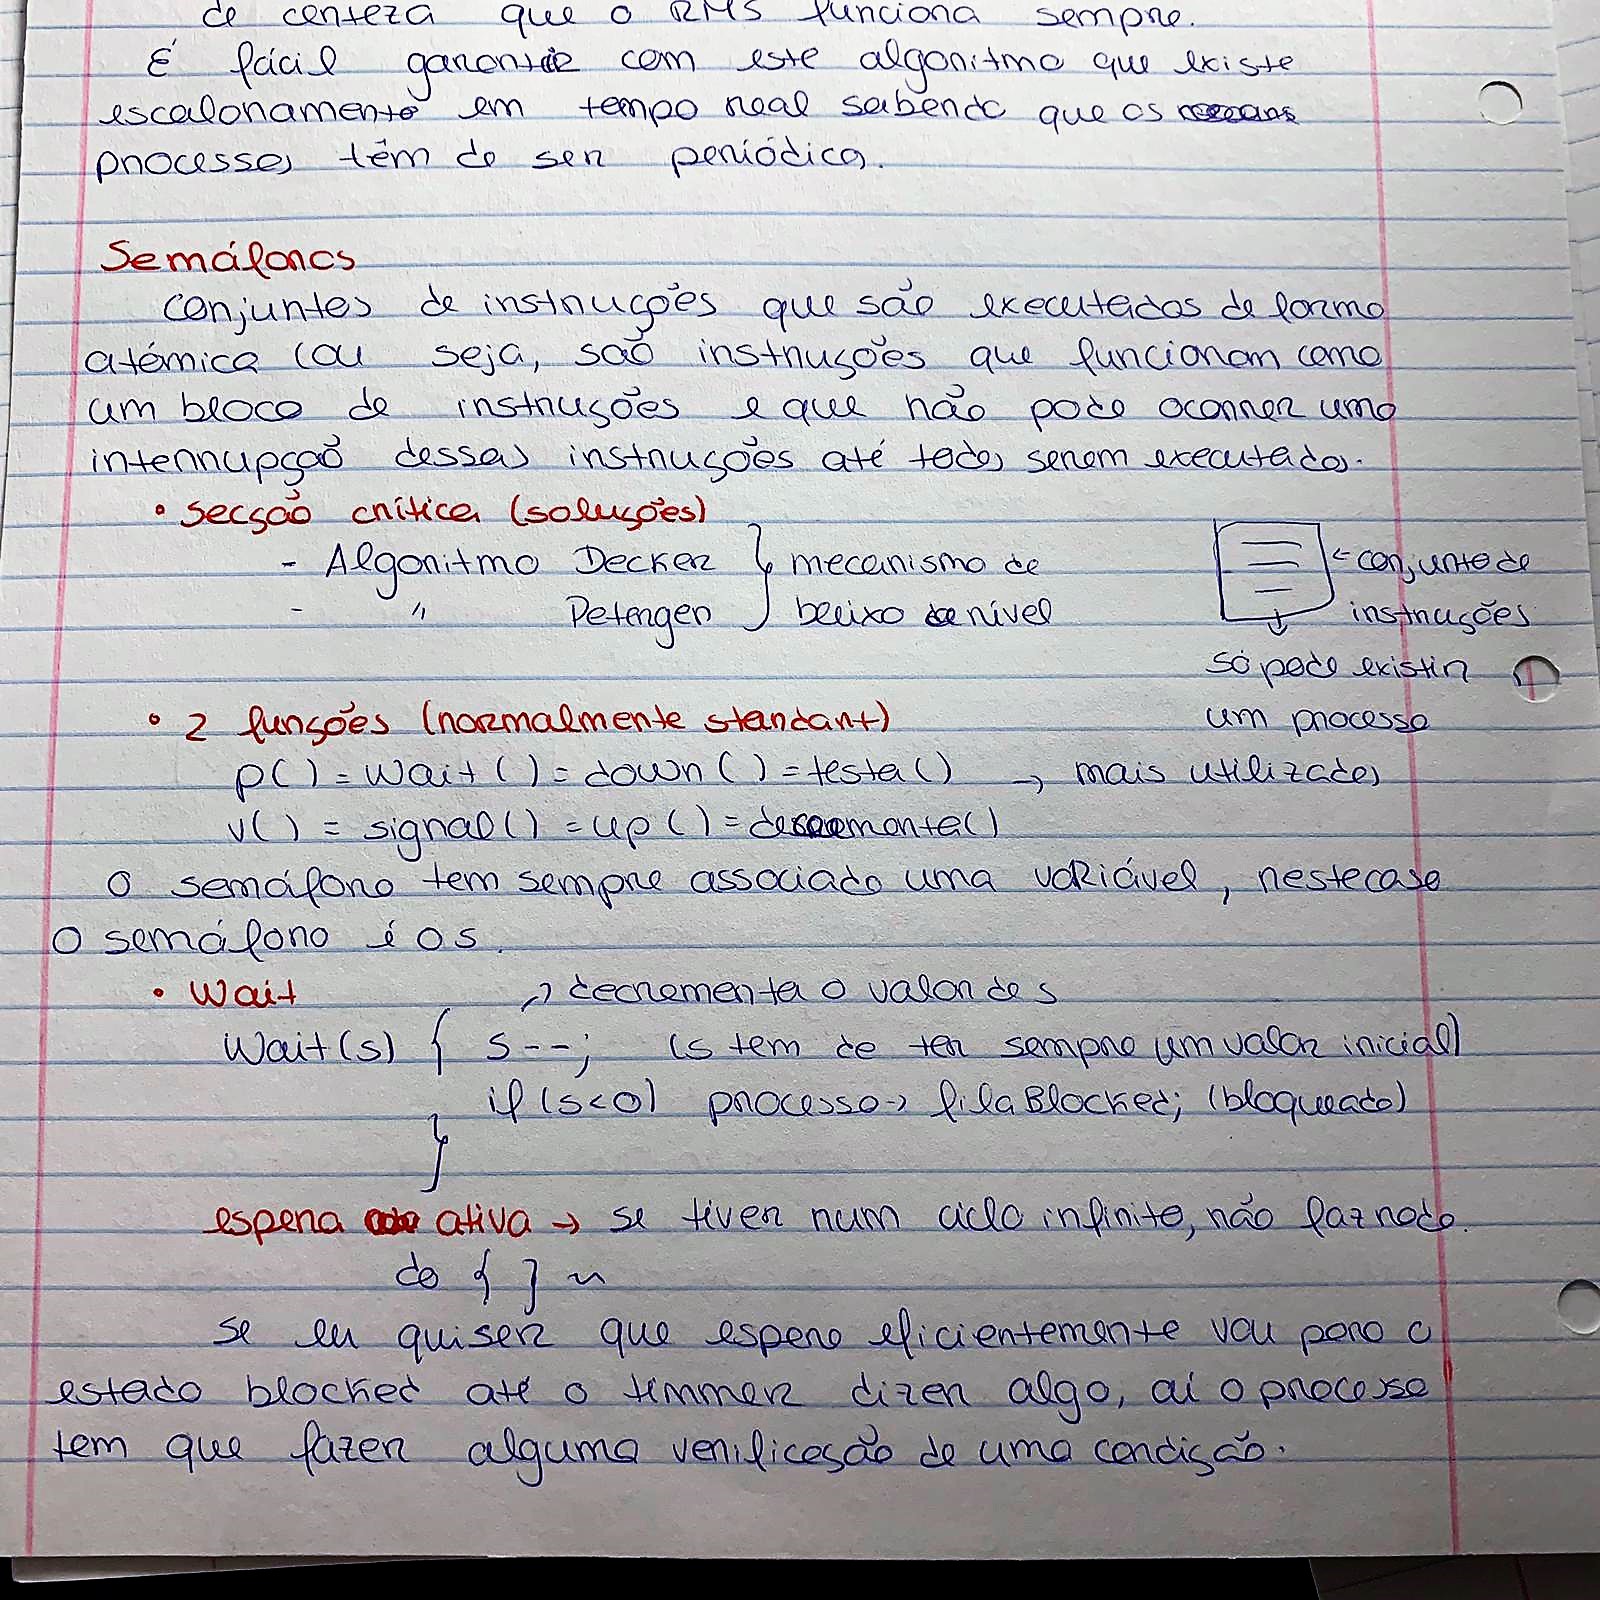 de certeza que o RMS funciona sempre.
É fácil garantir com este algoritmo que existe
escalonamento em tempo real sabendo que os
processos têm de ser periódica.
Semáforos
conjuntos de instruções que são executados de forma
atómica (ou seja, são instruções que funcionam como
um bloco de instruções e que não pode ocorrer uma
interrupção dessas instruções até todas serem executadas.
• Secção crítica (soluções)
- Algoritmo Decker } mecanismo de
- " Petergen } baixo de nível
← conjunto de
instruções
só pode existir
um processo
• 2 funções (normalmente standart)
p() = wait() = down() = testa() → mais utilizadas
v() = signal() = up() =
O semáforo tem sempre associado uma variável, neste caso
o semáforo é o s.
• Wait → decrementa o valor de s
Wait(s) { s--; (s tem de ter sempre um valor inicial)
if (s<0) processo → fila Blocked; (bloqueado)
}
espera ativa → se tiver num ciclo infinito, não faz nada.
do { } ~
Se eu quiser que espere eficientemente vou para o
estado blocked até o timmer dizer algo, aí o processo
tem que fazer alguma verificação de uma condição.